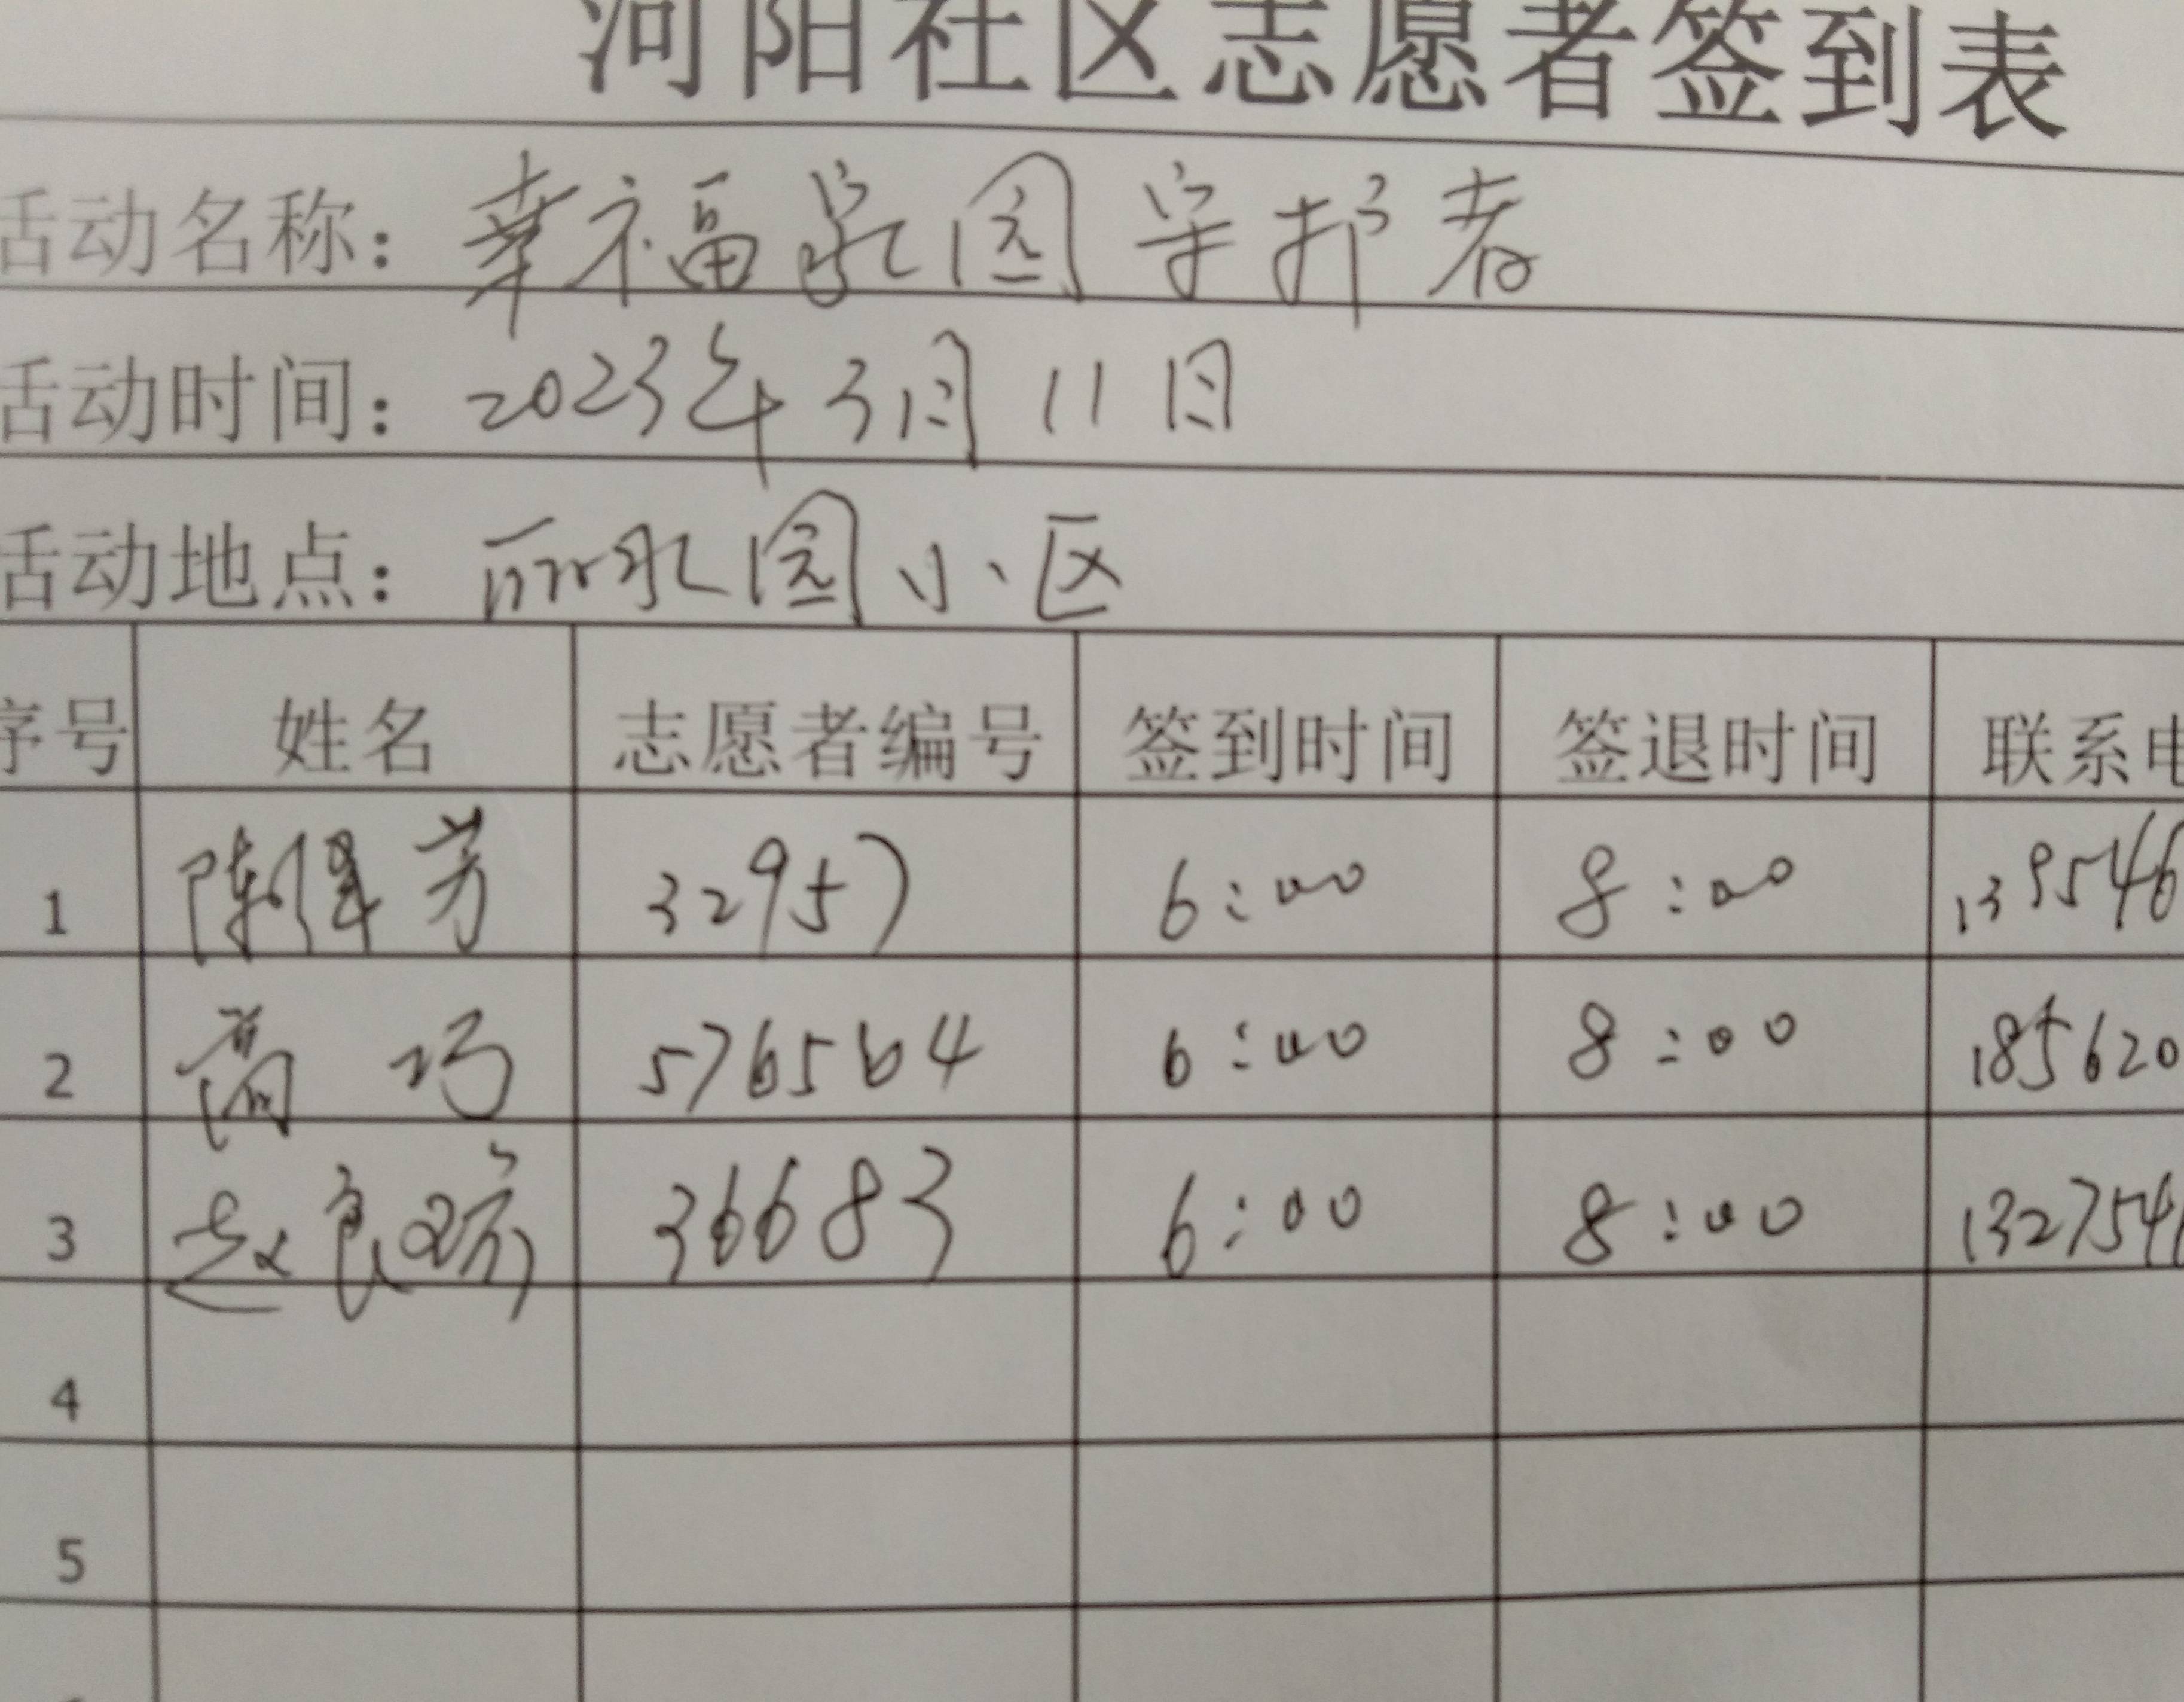 河阳社区志愿者签到表
活动名称：幸福家园守护者
活动时间：2023年3月11日
活动地点：丽水园小区
序号 姓名 志愿者编号 签到时间 签退时间 联系电
1 陈 芳 32957 6:00 8:00 139546
2 巧 576564 6:00 8:00 185620
3 赵良 36683 6:00 8:00 132754
4
5